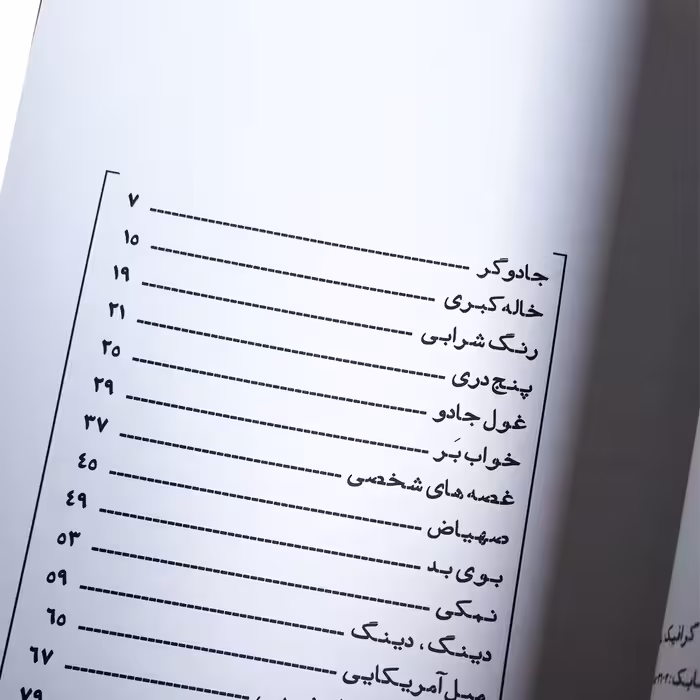 جادوگر ---------- ۷
خاله‌کبری ---------- ۱۵
رنگ شرابی ---------- ۱۹
پنج‌دری ---------- ۲۱
غول جادو ---------- ۲۵
خواب بَر ---------- ۲۹
غصه‌های شخصی ---------- ۳۷
صهیاض ---------- ٤۵
بوی بد ---------- ٤۹
نمکی ---------- ۵۳
دینگ، دینگ ---------- ۵۹
آمریکایی ---------- ٦۵
---------- ٦۷
۷۹
گرافیک